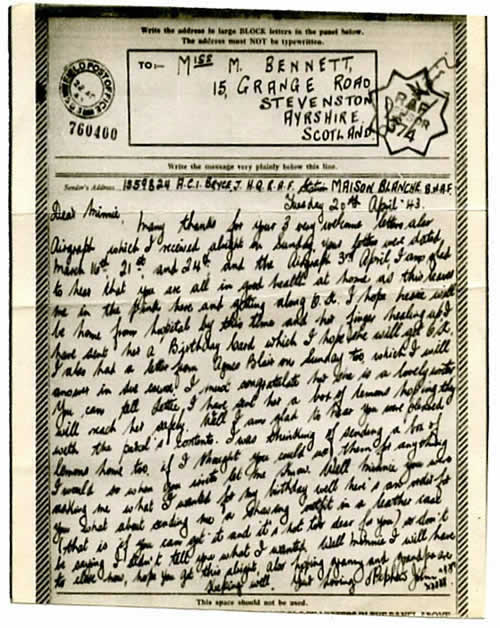 Write the address in large BLOCK letters in the panel below.
The address must NOT be typewritten.
TO:-
MISS M. BENNETT,
15, GRANGE ROAD
STEVENSTON
AYRSHIRE,
SCOTLAND
FIELD POST OFFICE
760400
R.A.F.
74
Write the message very plainly below this line.
Sender's Address 1359824 A.C.1. BRYCE, J. H.Q. R.A.F. Station MAISON BLANCHE B.N.A.F.
Tuesday 20th April '43.
Dear Minnie, Many thanks for your 3 very welcome letters also
Airgraph which I received alright on Sunday, your letters were dated,
March 16th, 21st, and 24th and the Airgraph 3rd April. I am glad
to hear that you are all in good health at home, as this leaves
me in the pink here and getting along O.K. I hope will
be home from hospital by this time and her finger healing up I
have sent her a Birthday Card which I hope she will get O.K.
I also had a letter from Agnes Blair on Sunday too, which I will
answer in due course, I must congratulate her she is a lovely writer
You can tell Lottie, I have sent her a box of lemons hoping they
will reach her safely. Well I am glad to hear you were pleased
with the parcel's contents. I was thinking of sending a box of
lemons home too, if I thought you could use them for anything
I would so when you write let me know. Well Minnie you was
asking me what I wanted for my birthday well here's an order for
you what about sending me a shaving outfit in a leather case
(that is if you can get it and it's not too dear for you) so don't
be saying I didn't tell you what I wanted. Well Minnie I will have
to close now, hope you get this alright, also hoping granny and grandpa are
keeping well. Your loving nephew John
This space should not be used.